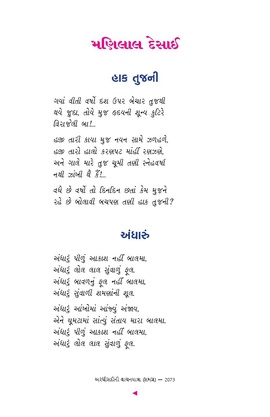 મણિલાલ દેસાઈ
હાક તુજની
ગયાં વીતી વર્ષો દશ ઉપર બેચાર તુજથી
થયે જુદા, તોયે મુજ હૃદયની શૂન્ય કુટિરે
વિરાજેલી બા!...
હજી તારી કાયા મુજ નયન સામે ઝળહળે,
હજી તારો હાલો કરણપટ માંહીં રણઝણે,
અને ગાલે મારે તુજ ચૂમી તણી સ્નેહવર્ષા
નથી ઝાંખી થૈ કૈં!...
વધે છે વર્ષો તો દિનદિન છતાં કેમ મુજને
રહે છે બોલાવી બચપણ તણી હાક તુજની?
અંધારું
અંધારું પીળું આકાશ નહીં બાલમા,
અંધારું લોલ લાલ સુંવાળું ફૂલ.
અંધારું બાવળનું ફૂલ નહીં બાલમા,
અંધારું સુંવાળી શમણાંની શૂલ.
અંધારું આંખોમાં આંજ્યું અંજાય,
એને ઘૂમટામાં સાંત્યું સંતાય મારા બાલમા.
અંધારું પીળું આકાશ નહીં બાલમા,
અંધારું લોલ લાલ સુંવાળું ફૂલ.
— 2073